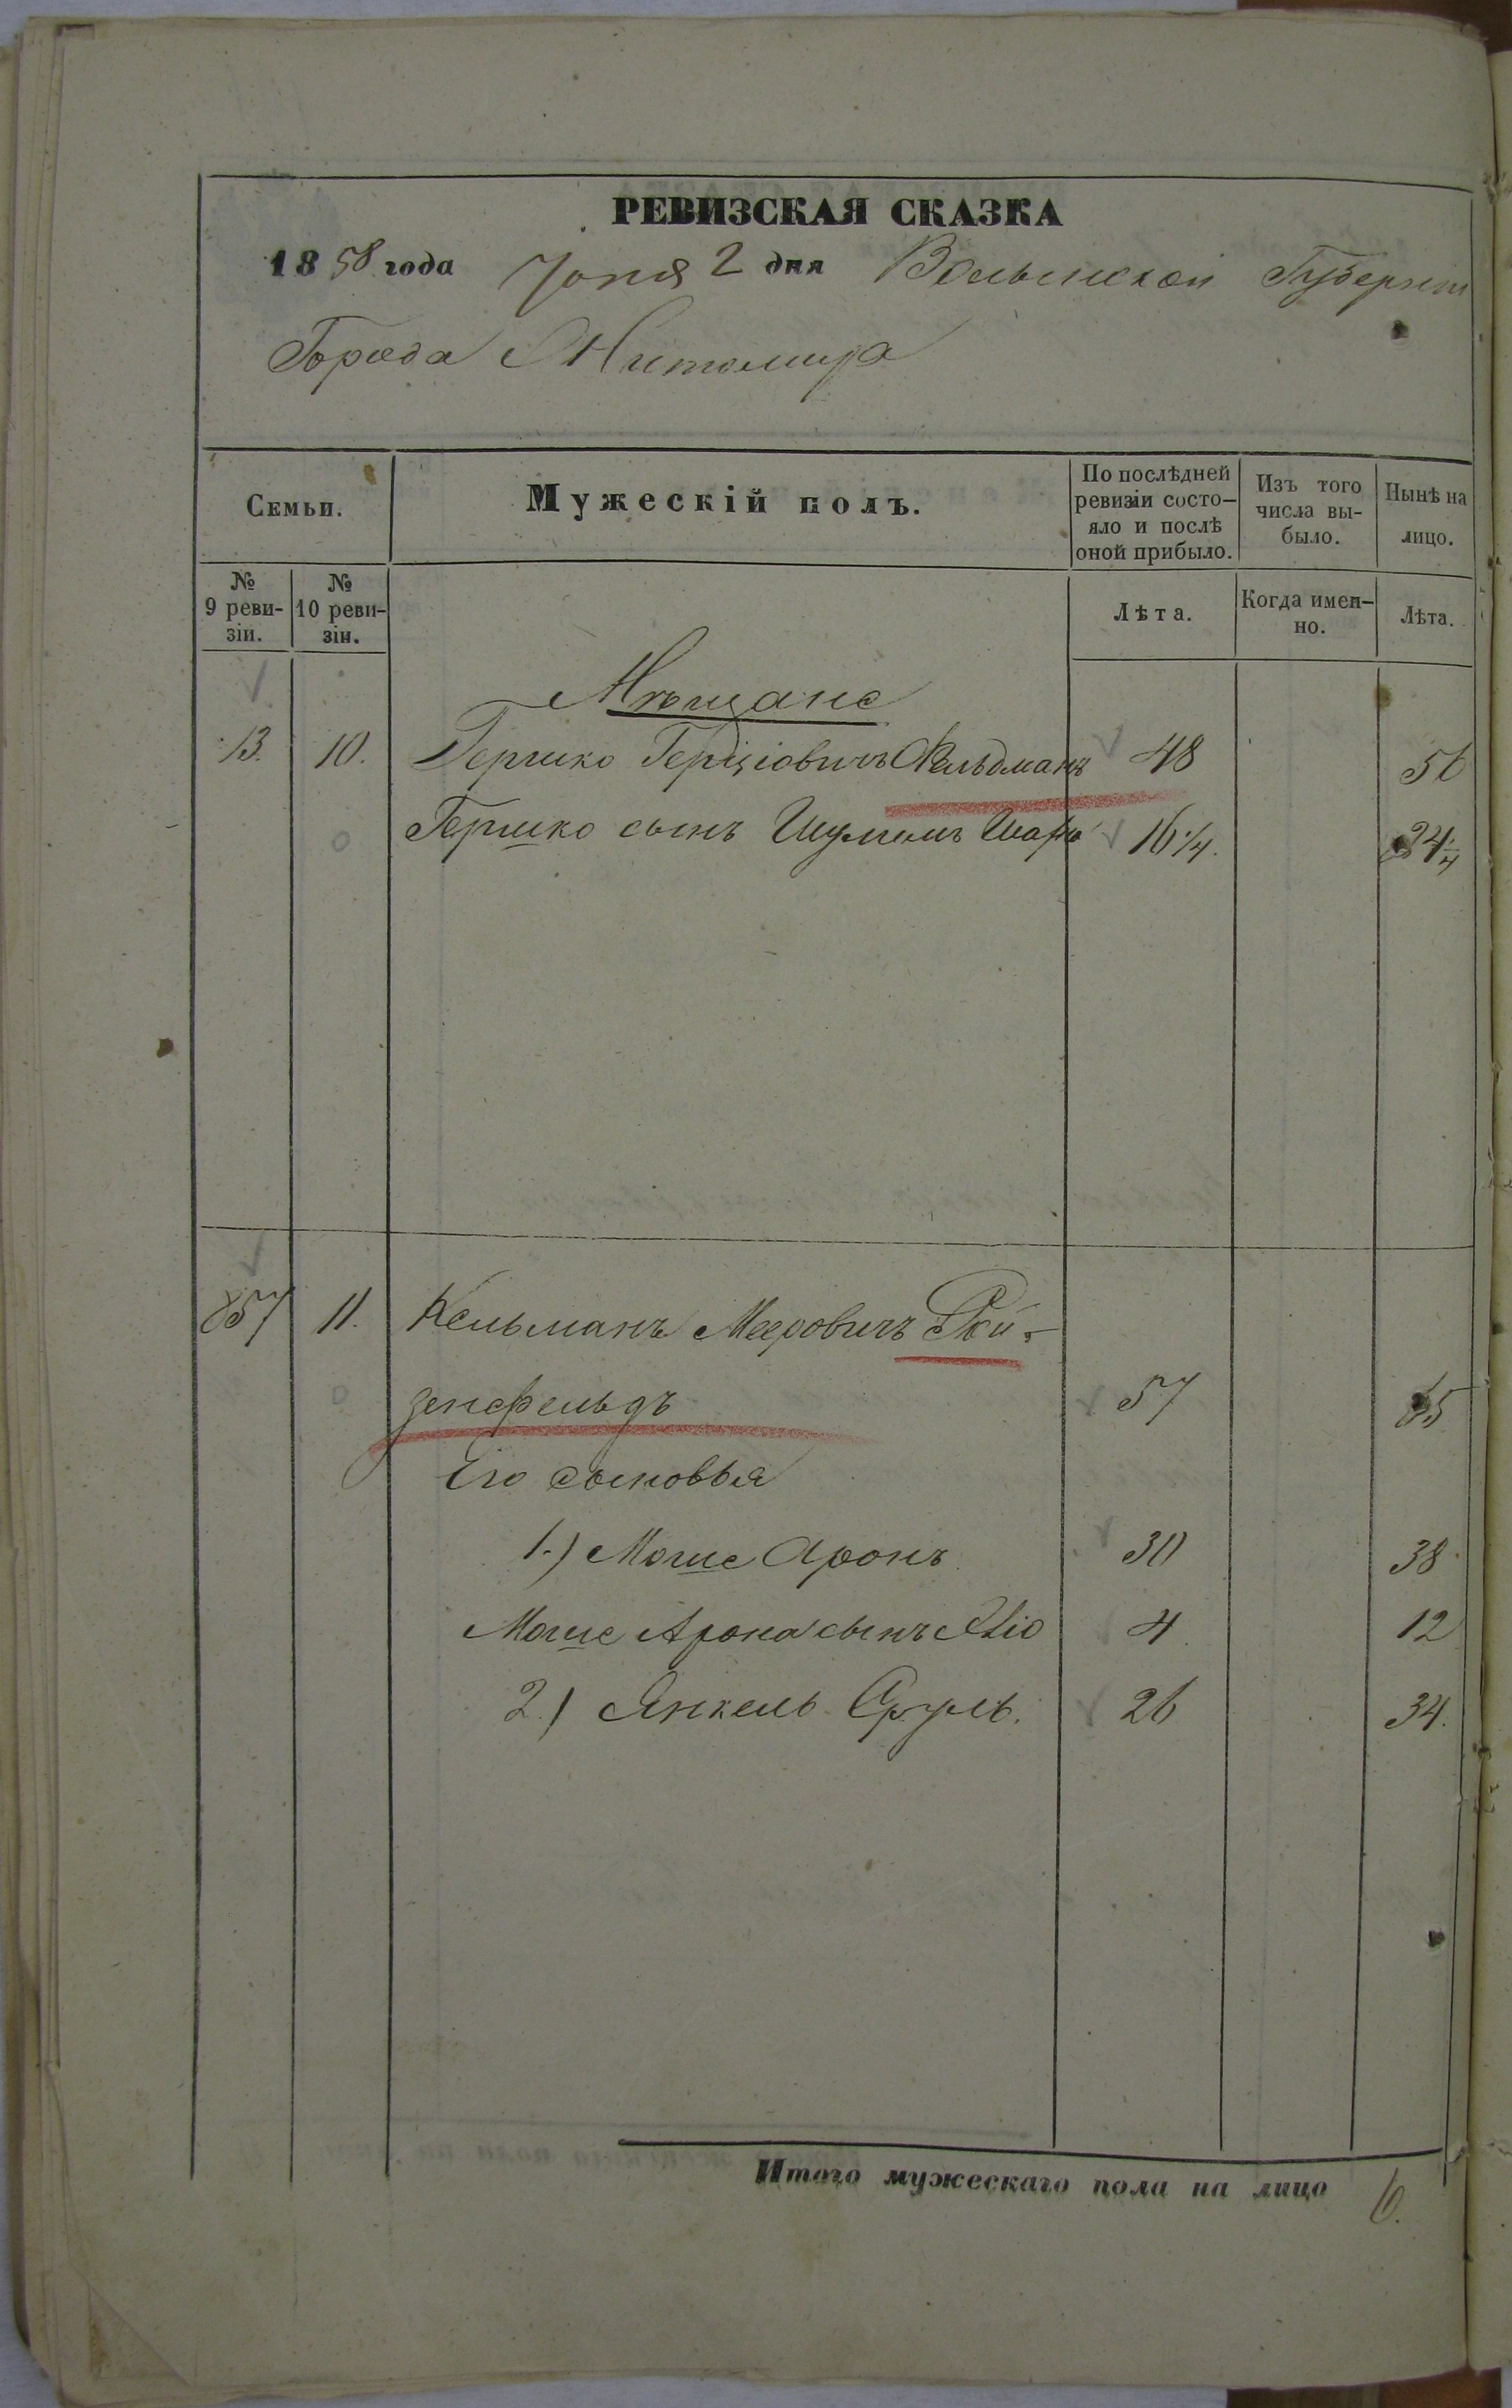 РЕВИЗСКАЯ СКАЗКА
1858 года Іюня 2 дня Волынской Губерніи
Города Житомира
Семьи.
Мужескій полъ.
По послѣдней ревизіи состо-яло и послѣ оной прибыло.
Изъ того числа вы-было.
Нынѣ на лицо.
№ 9 реви-зіи.
№ 10 реви-зіи.
Лѣта.
Когда имен-но.
Лѣта.
Мѣщане
13. 10. Гершко Герціовичъ Фельдманъ 48 56
Гершко сынъ Шулимъ 16 1/4. 24 1/4
857 11. Кельманъ Мееровичъ Рой-
зенфельдъ 57 65
Его сыновья
1.) Мошие Аронъ 30 38
Мошие Арона сынъ 4 12
2.) Янкель Сруль. 26 34.
Итого мужескаго пола на лицо 6.